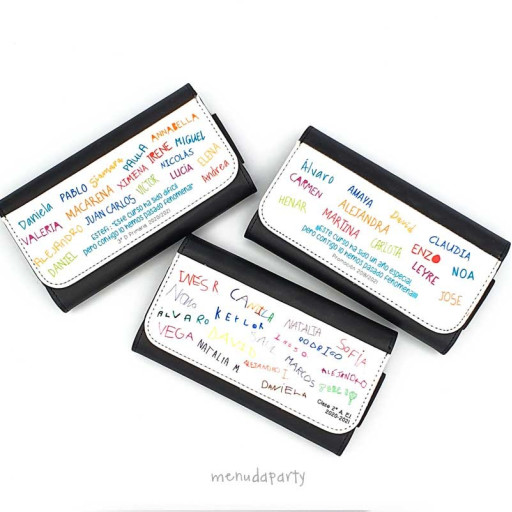 ANNABELLA
PAULA
Giomara
PABLO
Daniela
MIGUEL
IRENE
XIMENA
MACARENA
VALERIA
ELENA
NICOLAS
VÍCTOR
JUAN CARLOS
ALEJANDRO
Andrea
LUCÍA
DANIEL
ESTEFI, Este curso ha sido difícil
pero contigo lo hemos pasado fenomenal!
3º D Primaria 2020/2021
Álvaro
AMAYA
David
CLAUDIA
CARMEN
ALEJANDRA
ENZO
NOA
HENAR
MARTINA
CARLOTA
LEYRE
JOSE
este curso ha sido un año especial
pero contigo lo hemos pasado fenomenal!!
Promoción 2020/2021
INÉS R
CAMILA
NATALIA
SOFÍA
NORA
KEYLOR
RODRIGO
ALVARO
DAVID
MARCOS
ALEJANDRO
VEGA
NATALIA M
DANIELA
Clase 2º A. E.I
2020-2021
menudaparty